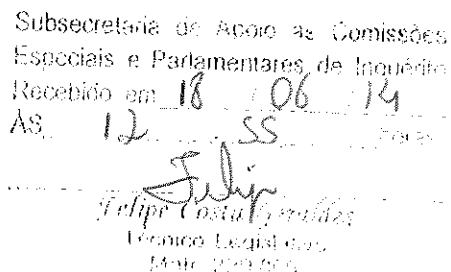 Subsecretaria de Apoio as Comissões
Especiais e Parlamentares de Inquérito
Recebido em 18 / 06 / 14
ÀS 12 55 horas
Felipe Costa Geraldes
Técnico Legislativo
Matr.